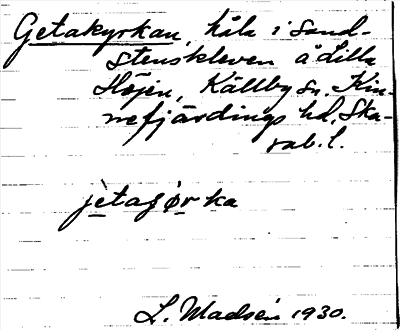 Getakyrkan, håla i sand-
stenskleven å Lilla
Höjen, Källby sn. Kin-
nefjärdings hd. Ska-
rab. l.
jètaʃørka
L. Madsén 1930.